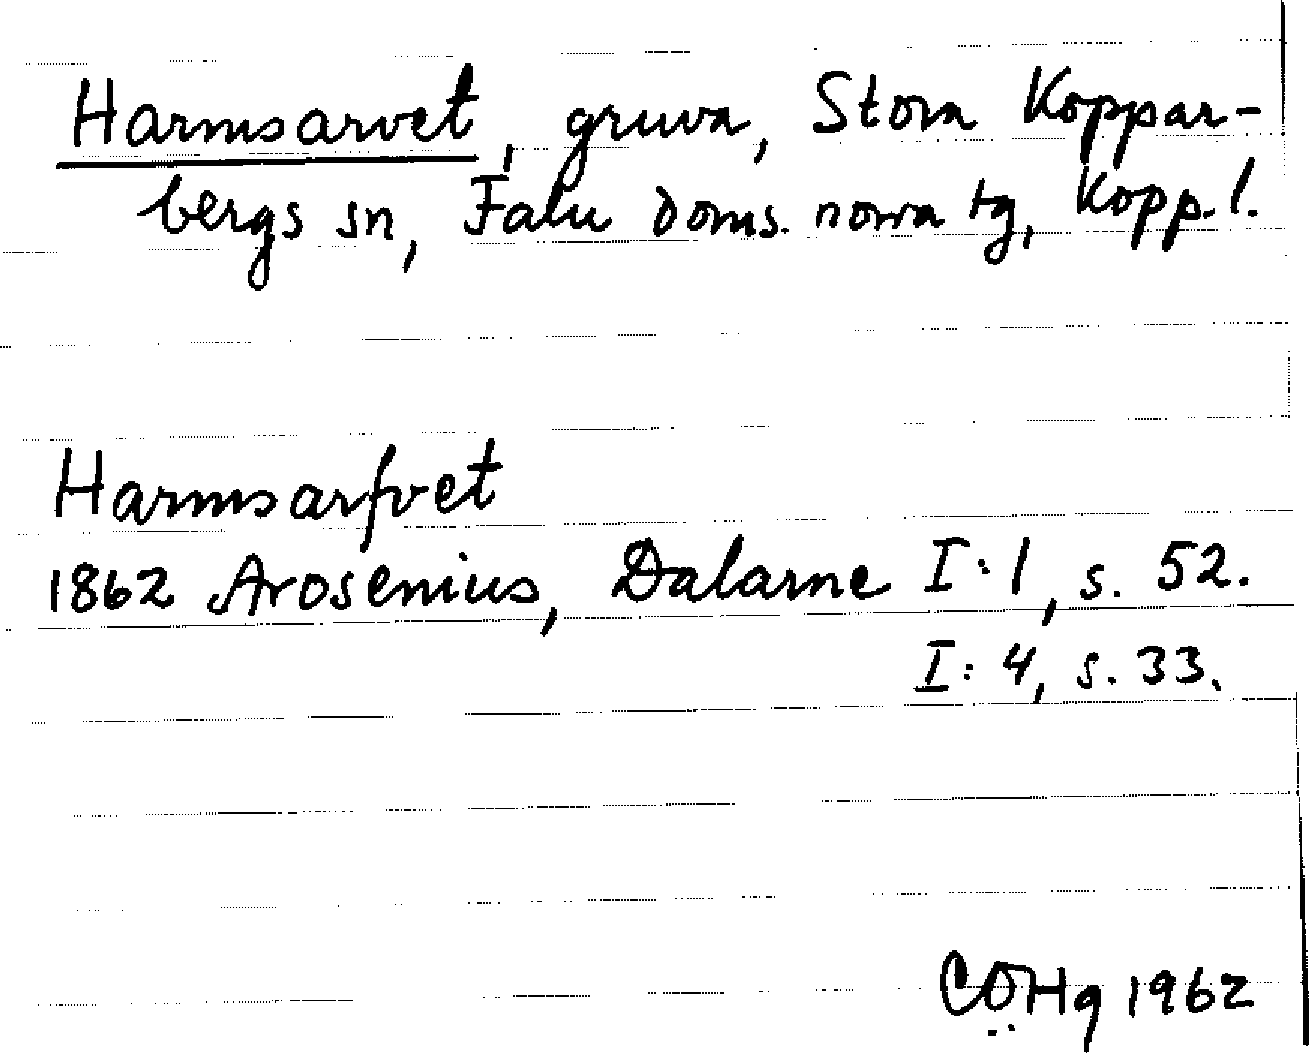 Harmsarvet, gruva, Stora Koppar-
bergs sn, Falu doms. norra tg, Kopp. l.
Harmsarfvet
1862 Arosenius, Dalarne I:1, s. 52.
I:4, s. 33.
CÖHg 1962